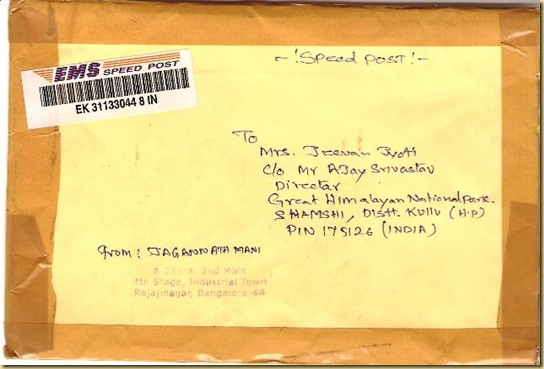 -'Speed Post!-
EMS SPEED POST
EK 31133044 8 IN
To
Mrs. Jeevan Jyoti
C/o Mr Ajay Srivastav
Director
Great Himalayan National Park.
SHAMSHI, Distt. Kullu (H.P)
PIN 175126 (INDIA)
From: JAGANNATH MANI
2nd Main
4th Stage, Industrial Town
Rajajinagar, Bangalore-44